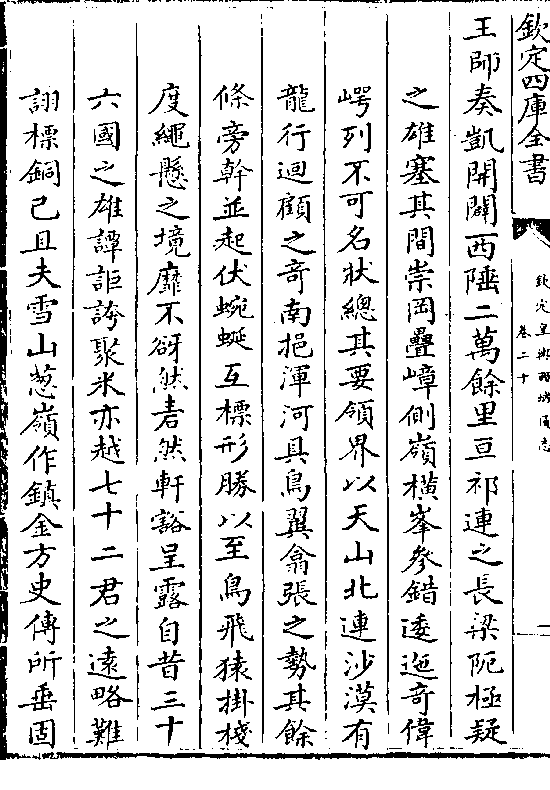 欽定四庫全書
欽定皇輿西域圖志
卷二十
一
王師奏凱開闢西陲二萬餘里亘祁連之長梁阨極疑
之雄塞其間崇岡疊嶂側嶺橫峯參錯逶迤奇偉
崿列不可名狀總其要領界以天山北連沙漠有
龍行迴顧之竒南挹渾河具鳥翼翕張之勢其餘
條旁幹並起伏蜿蜒互標形勝以至鳥飛猿掛棧
度繩懸之境靡不谺然砉然軒豁呈露自昔三十
六國之雄譚詎誇聚米亦越七十二君之遠略難
詡標銅已且夫雪山葱嶺作鎮金方史傳所垂固